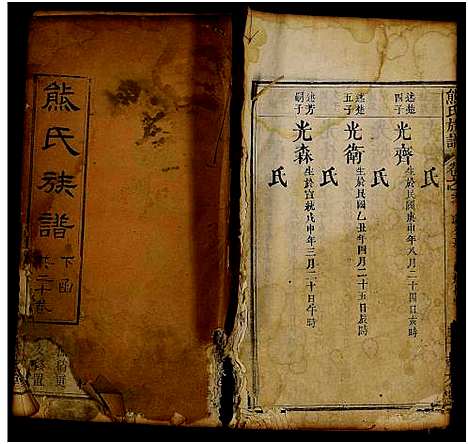 熊氏族譜
下函
共二十卷
熊氏族譜
氏
述楚四子
光齊
生於民國庚申年八月二十四日亥時
氏
述楚五子
光衛
生於民國乙丑年四月二十五日辰時
氏
述芳嗣子
光森
生於宣統戊申年三月二十日午時
氏